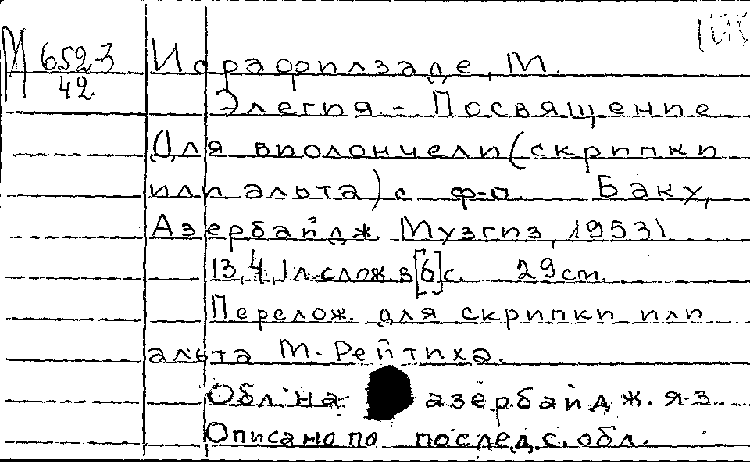 М 652-3 Исрафилзаде, М.
42
Элегия - Посвящение
Для виолончели (скрипки
или альта) с ф-п. Баку,
Азербайдж. Музгиз, 1953.
13, 4, 1 л. слож. в [6] с. 29 cm.
Перелож. для скрипки или
альта М. Рейтиха.
Обл. на азербайдж. яз.
Описано по послед. с. обл.